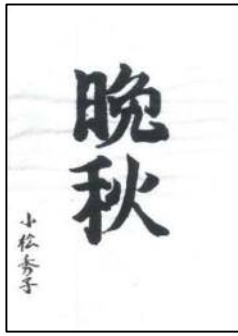 晩秋
小松秀子